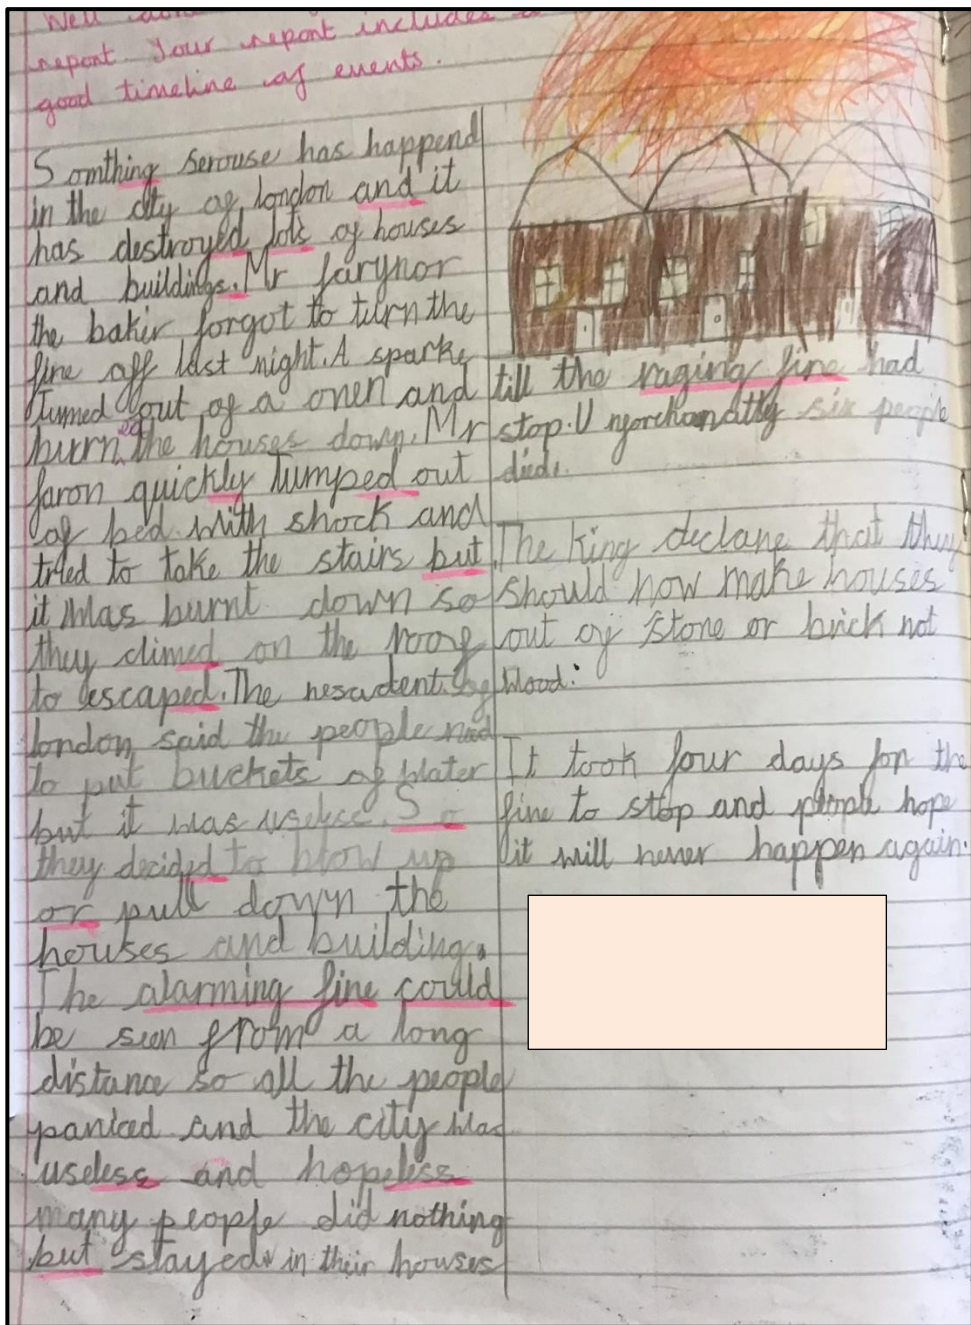 Well
report. Your report includes a
good timeline of events.
Somthing serouse has happend
in the city of london and it
has destroyed lots of houses
and buildings. Mr farynor
the bakir forgot to turn the
fire off last night. A sparke
Jumed out of a onen and
burn ed the houses down. Mr
faron quickly Jumped out
of bed with shock and
tried to take the stairs but
it was burnt down so
they climed on the roof
to escaped. The resadent of
london said the people need
to put buckets of water
but it was useless. So
they decided to blow up
or pull down the
houses and building.
The alarming fire could
be seen from a long
distance so all the people
paniced and the city was
useless and hopeless
many people did nothing
but stayed in their houses
till the raging fire had
stop. six people
died.
The King declare that they
should now make houses
out of stone or brick not
wood.
It took four days for the
fire to stop and people hope
it will never happen again.